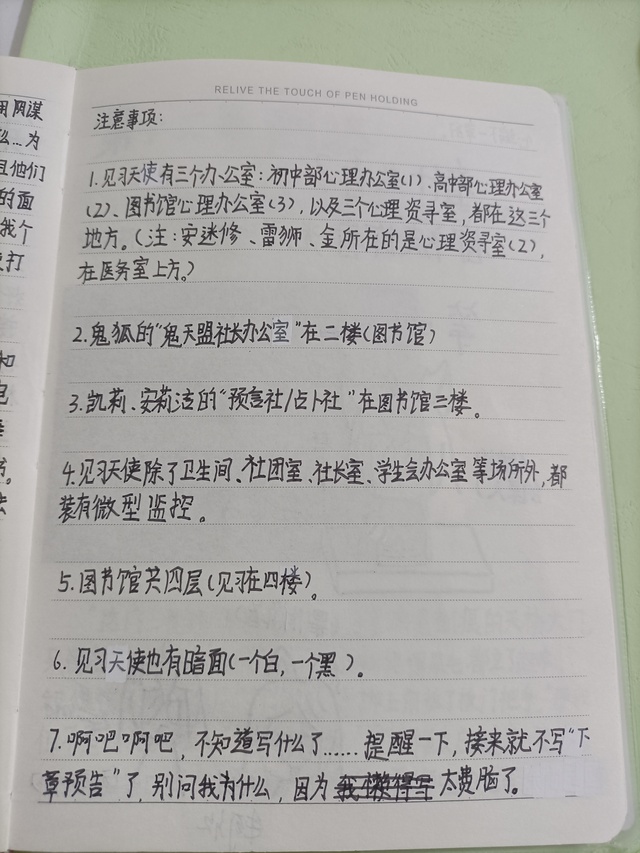 RELIVE THE TOUCH OF PEN HOLDING
注意事项:
1.见习天使有三个办公室:初中部心理办公室(1)、高中部心理办公室
(2)、图书馆心理办公室(3),以及三个心理资寻室,都在这三个
地方。(注:安迷修、雷狮、金所在的是心理资寻室(2),
在医务室上方。)
2.鬼狐的"鬼天盟社长办公室"在二楼(图书馆)
3.凯莉、安莉洁的"预言社/占卜社"在图书馆三楼。
4.见习天使除了卫生间、社团室、社长室、学生会办公室等场所外,都
装有微型监控。
5.图书馆共四层(见习在四楼)。
6.见习天使也有暗面(一个白,一个黑)。
7.啊吧啊吧,不知道写什么了……提醒一下,接来就不写"下
章预告"了,别问我为什么,因为我懒得写太费脑了。
用阴谋
么…为
且他们
的面
我个
打
和
包
书。
法